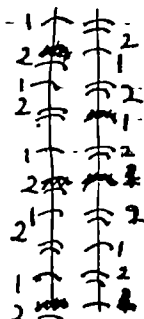 1
2
2
1
1
2
2
1
1
2
2
1
2
2
1
1
2
2